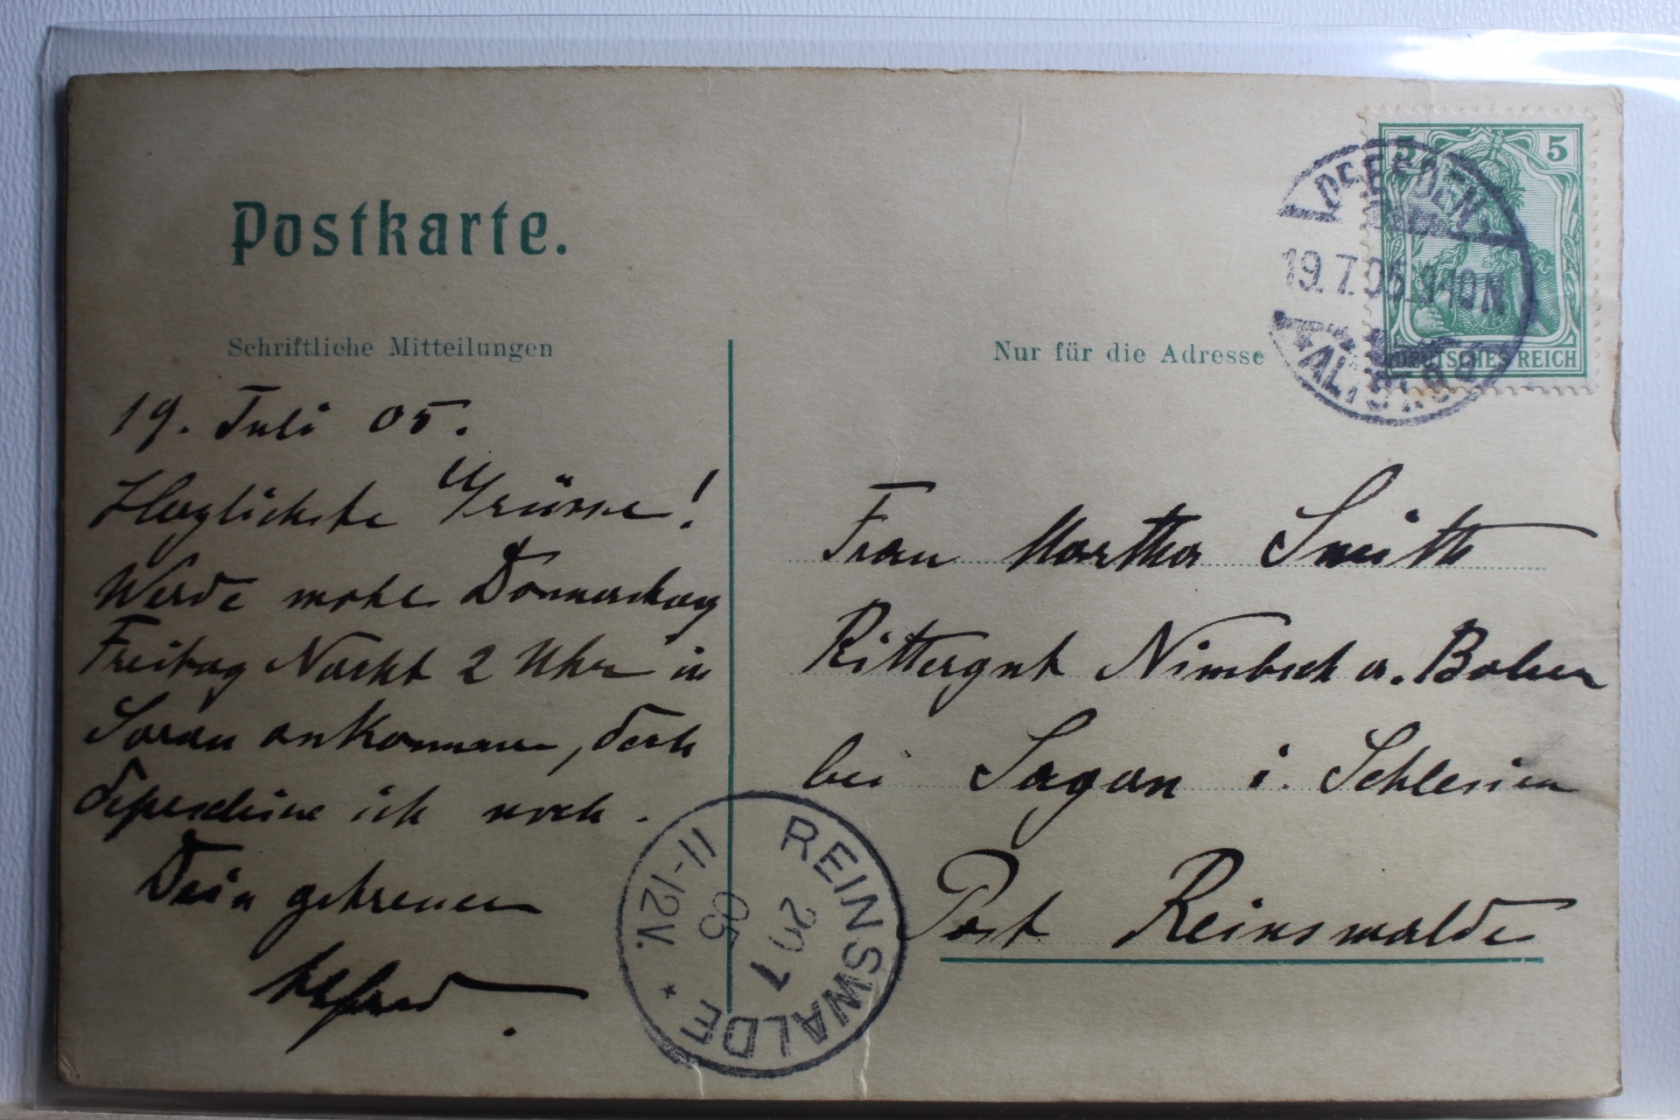 Postkarte.
Schriftliche Mitteilungen
Nur für die Adresse
5 5
DEUTSCHES REICH
DRESDEN
19.7.05. 9-10N
ALTST.
19. Juli 05.
Herzlichste Grüsse!
Werde wohl Donnerstag
Freitag Nacht 2 Uhr in
Sorau ankommen, doch
depeschire ich noch.
Dein getreuer
Alfred
Frau Martha Smith
Rittergut Nimbsch a. Bober
bei Sagan i. Schlesien
Post Reinswalde
REINSWALDE
20 7
05
11-12V.